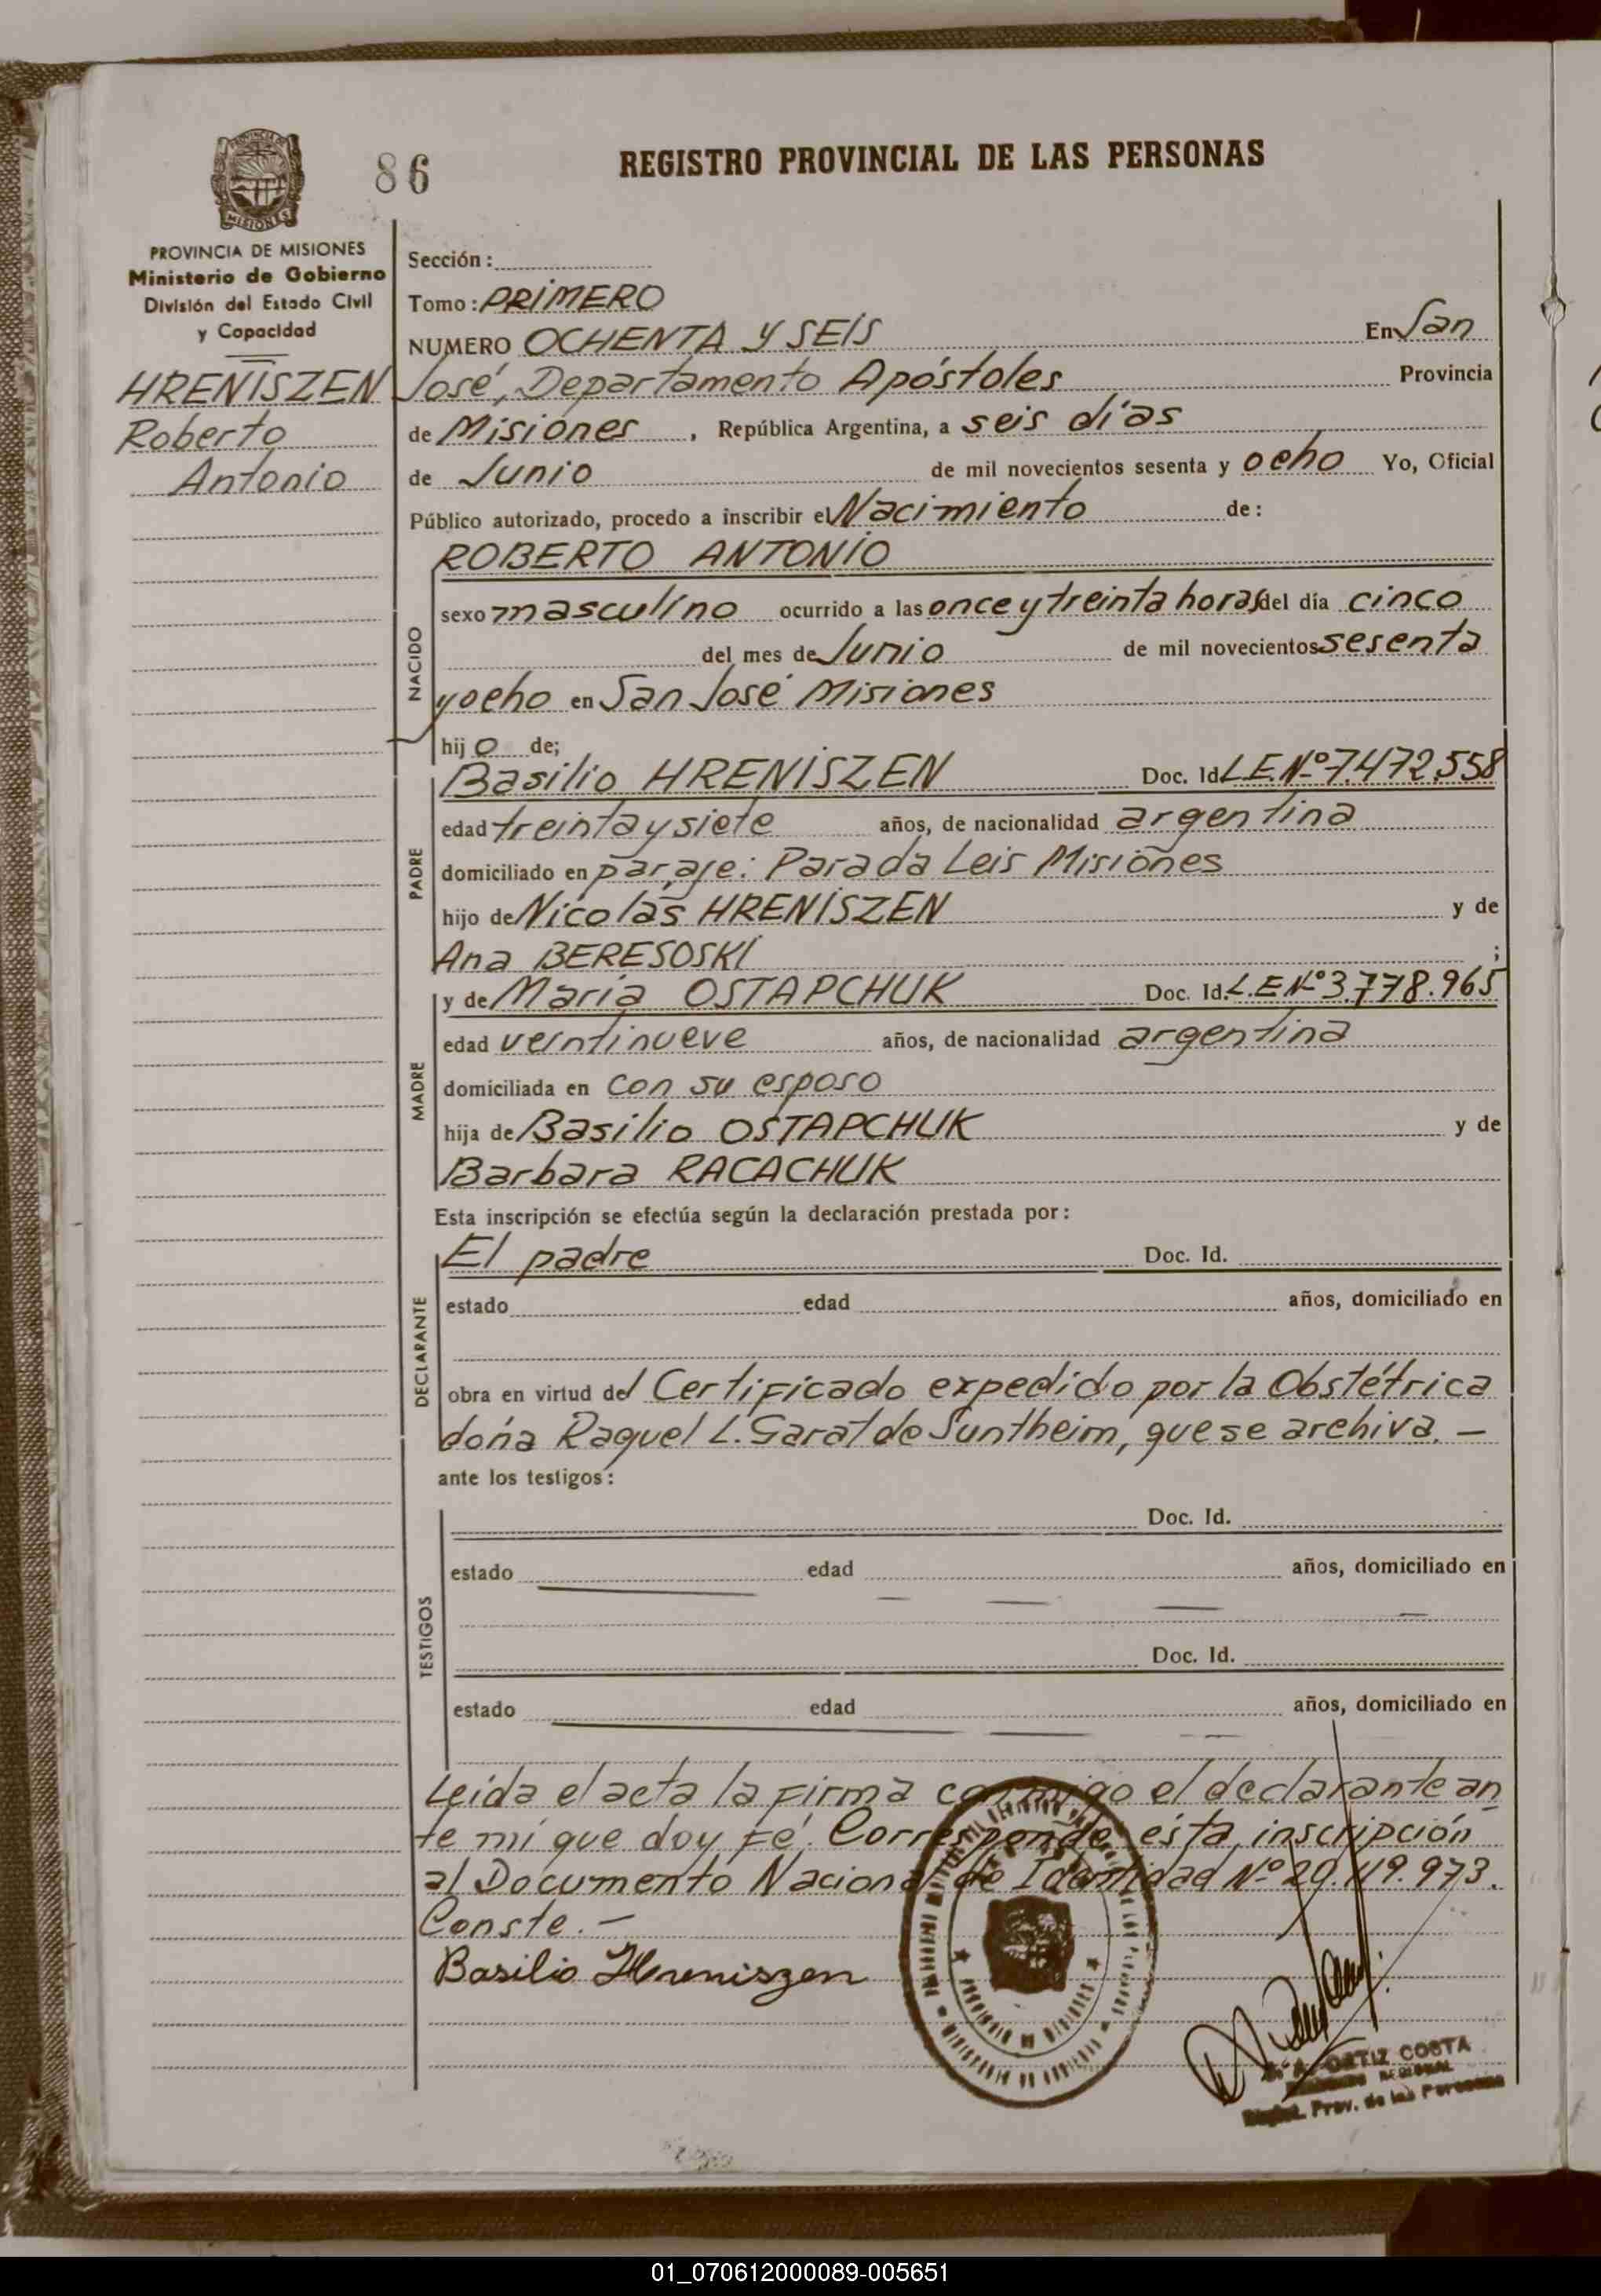 PROVINCIA DE
MISIONES
86
REGISTRO PROVINCIAL DE LAS PERSONAS
PROVINCIA DE MISIONES
Ministerio de Gobierno
División del Estado Civil
y Capacidad
HRENISZEN
Roberto
Antonio
Sección:
Tomo: PRIMERO
NUMERO OCHENTA Y SEIS En San
José, Departamento Apóstoles Provincia
de Misiones, República Argentina, a seis días
de Junio de mil novecientos sesenta y ocho Yo, Oficial
Público autorizado, procedo a inscribir el Nacimiento de:
NACIDO
ROBERTO ANTONIO
sexo masculino ocurrido a las once y treinta horas del día cinco
del mes de Junio de mil novecientos sesenta
y ocho en San José Misiones
hijo de;
PADRE
Basilio HRENISZEN Doc. Id L.E.Nº 7.472.558
edad treinta y siete años, de nacionalidad argentina
domiciliado en paraje: Parada Leis Misiones
hijo de Nicolás HRENISZEN y de
Ana BERESOSKI ;
MADRE
y de María OSTAPCHUK Doc. Id. L.E Nº 3.778.965
edad veintinueve años, de nacionalidad argentina
domiciliada en con su esposo
hija de Basilio OSTAPCHUK y de
Barbara RACACHUK
Esta inscripción se efectúa según la declaración prestada por:
DECLARANTE
El padre Doc. Id.
estado edad años, domiciliado en
obra en virtud del Certificado expedido por la Obstétrica
doña Raquel L. Garat de Suntheim, que se archiva. —
ante los testigos:
TESTIGOS
Doc. Id.
estado edad años, domiciliado en
Doc. Id.
estado edad años, domiciliado en
Leída el acta la firma conmigo el declarante an
te mí que doy fé. Corresponde ésta inscripción
al Documento Nacional de Identidad Nº 20.119.973.
Conste. —
Basilio Hreniszen
ORTIZ COSTA
REGIONAL
Prov. de las Personas
01_070612000089-005651